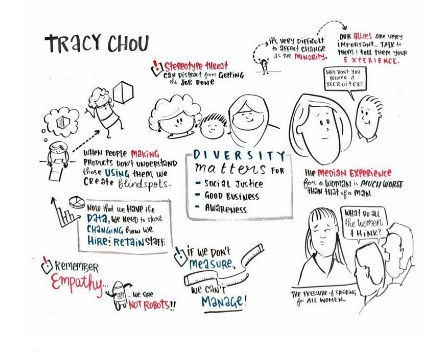 TRACY CHOU
STEREOTYPE THREAT
CAN DISTRACT from GETTING
the JOB DONE
it's VERY DIFFICULT
to AFFECT CHANGE
as the MINORITY.
OUR ALLIES ARE VERY
IMPORTANT... TALK to
THEM & TELL THEM YOUR
EXPERIENCE.
WHY DON'T YOU
BECOME A
RECRUITER?
WHEN PEOPLE MAKING
PRODUCTS DON'T UNDERSTAND
those USING THEM, WE
CREATE blindspots.
DIVERSITY
matters FOR
- SOCIAL JUSTICE
- GOOD BUSINESS
- AWARENESS
the MEDIAN EXPERIENCE
for a WOMAN is MUCH WORSE
THAN that of a MAN.
NOW that WE HAVE the
DATA, WE NEED to START
CHANGING how WE
HIRE & RETAIN STAFF.
WHAT DO ALL
the WOMEN
THINK?
REMEMBER
Empathy...
... WE ARE
NOT ROBOTS!!
IF WE DON'T
MEASURE,
WE CAN'T
MANAGE!
THE PRESSURE of SPEAKING
for ALL WOMEN.